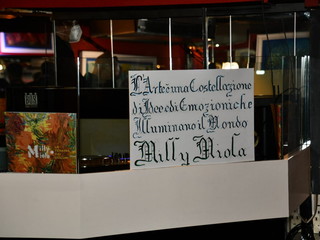 L'Arte è una Costellazione
di Idee di Emozioni che
Illuminano il Mondo
Milly Miola
Milly
Miola